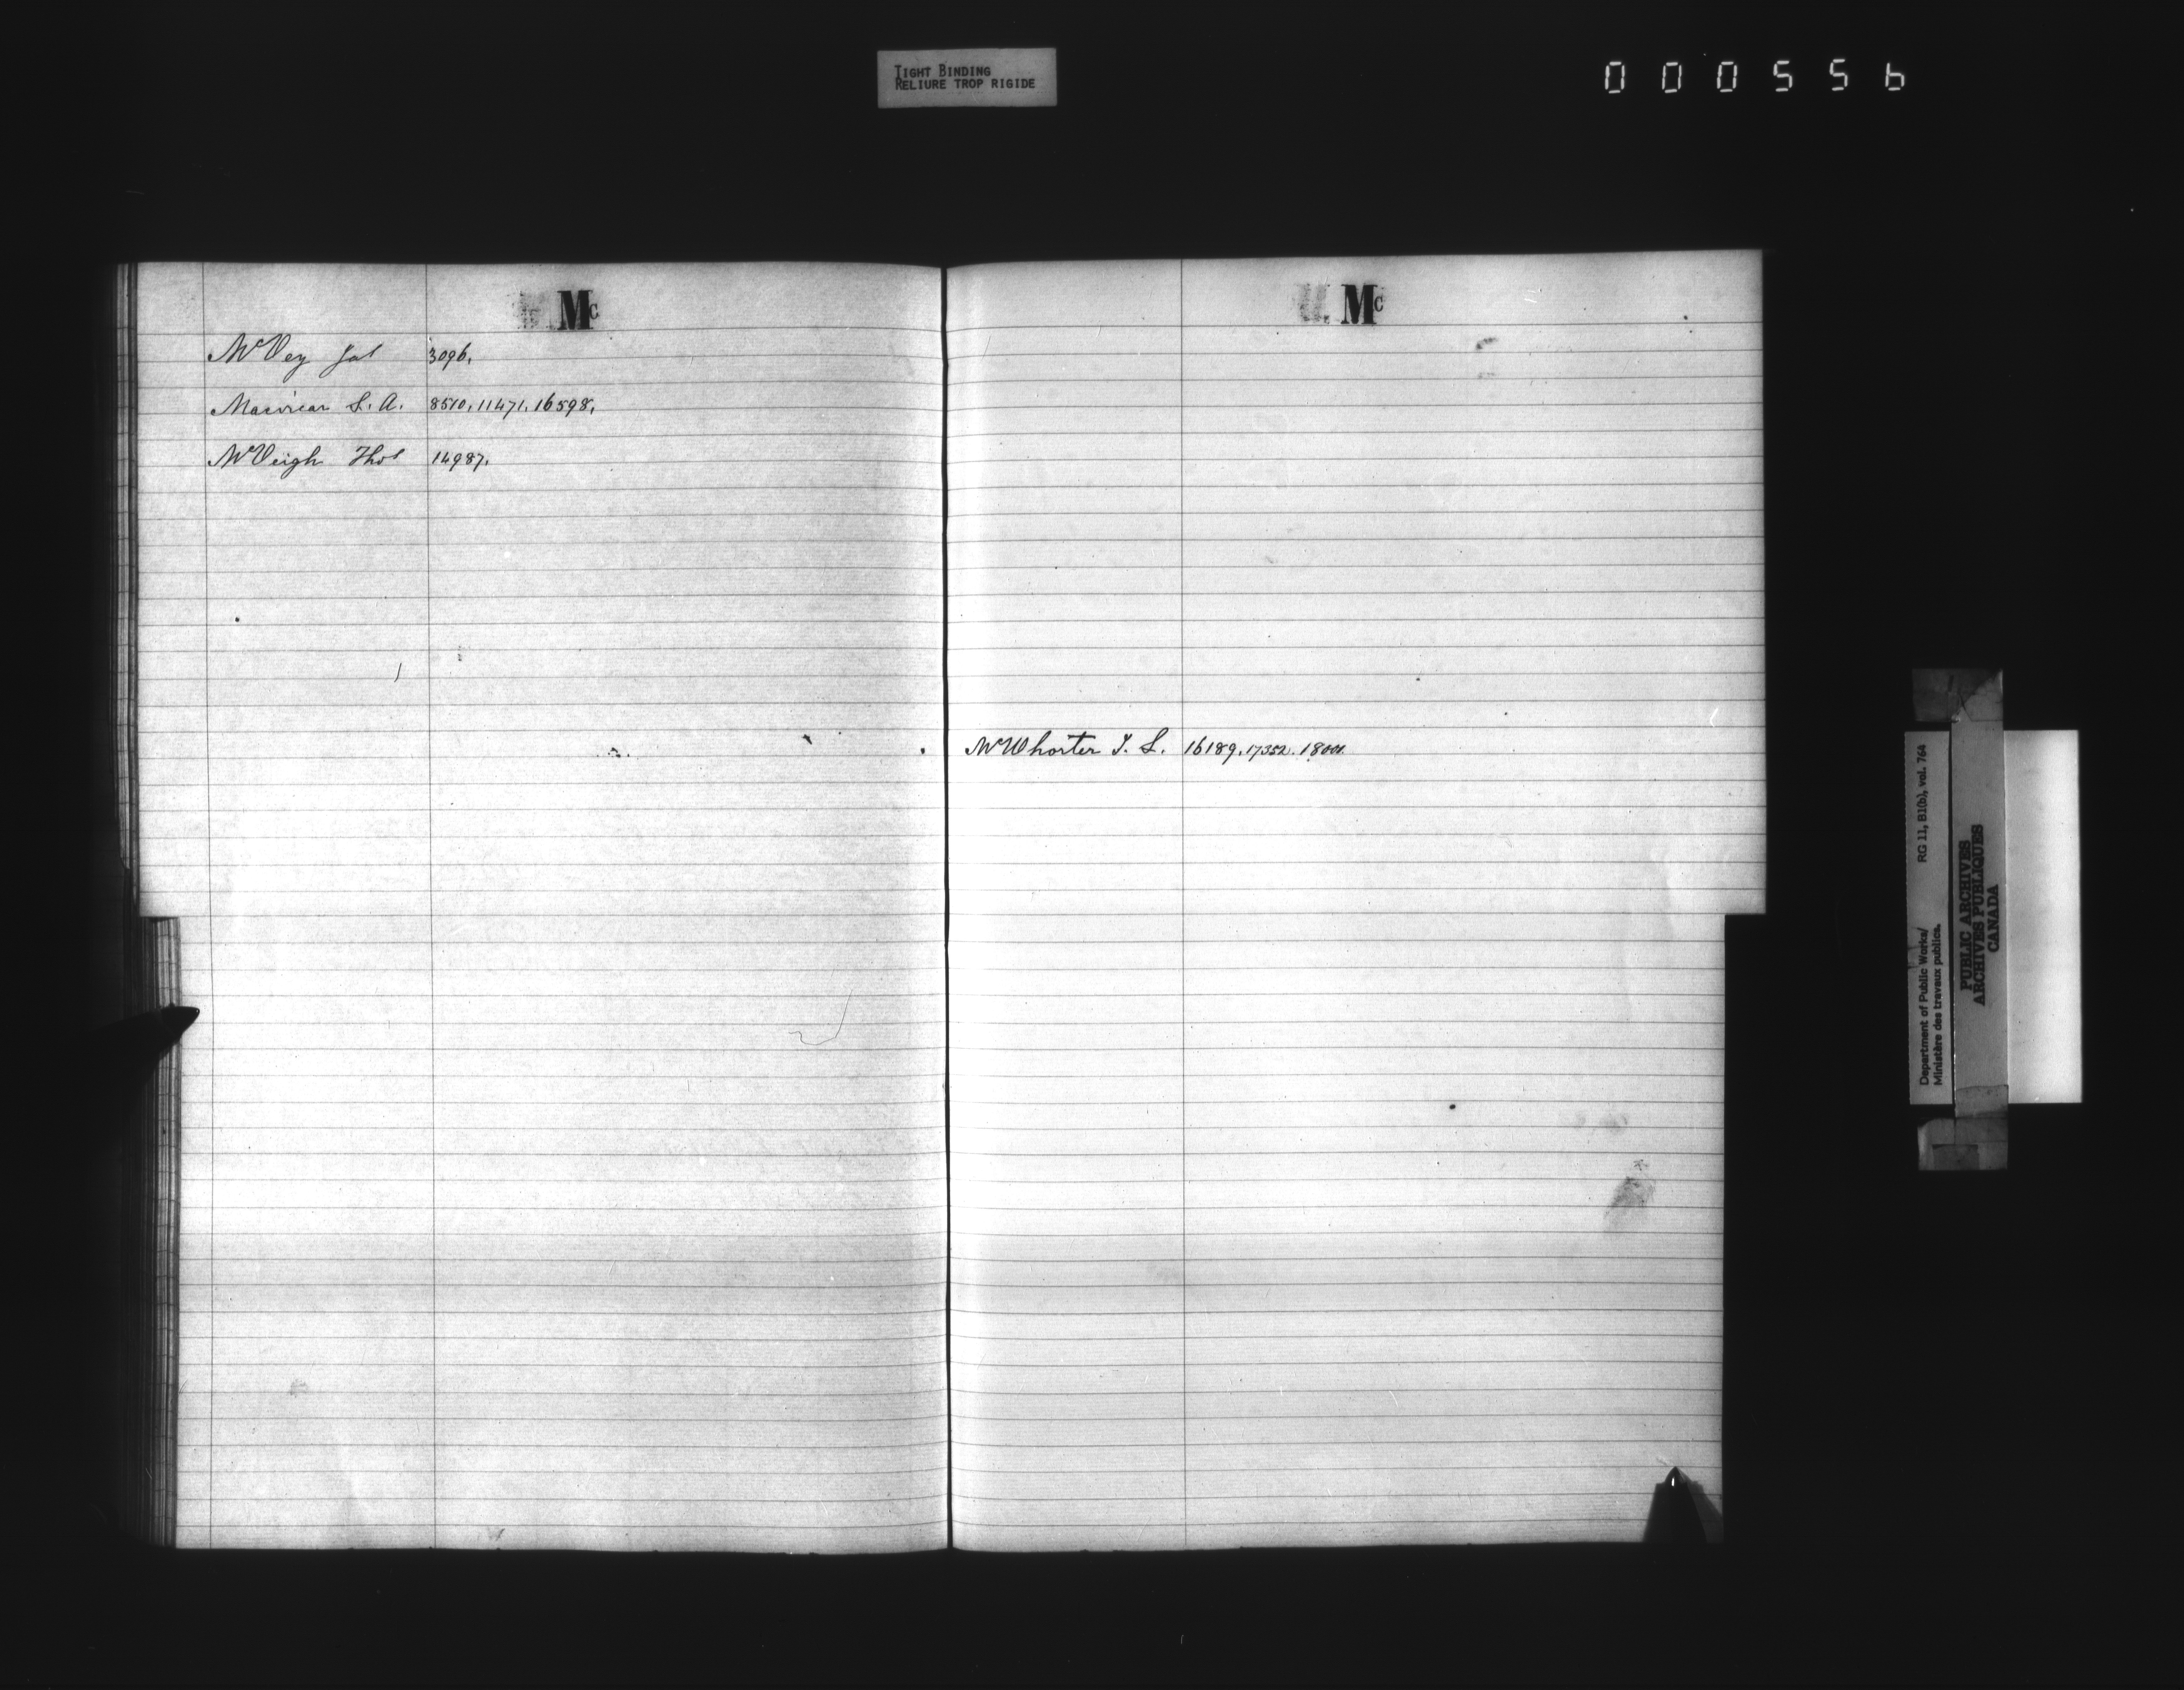 TIGHT BINDING
RELIURE TROP RIGIDE
000556
Mc
McVey Jas 3096.
Macvicar S. A. 8510. 11471. 16598.
McVeigh Thos 14987.
Mc
McWhorter J. S. 16189. 17352.
Department of Public Works/ RG 11, B1(b), vol. 764
Ministère des travaux publics.
PUBLIC ARCHIVES
ARCHIVES PUBLIQUES
CANADA